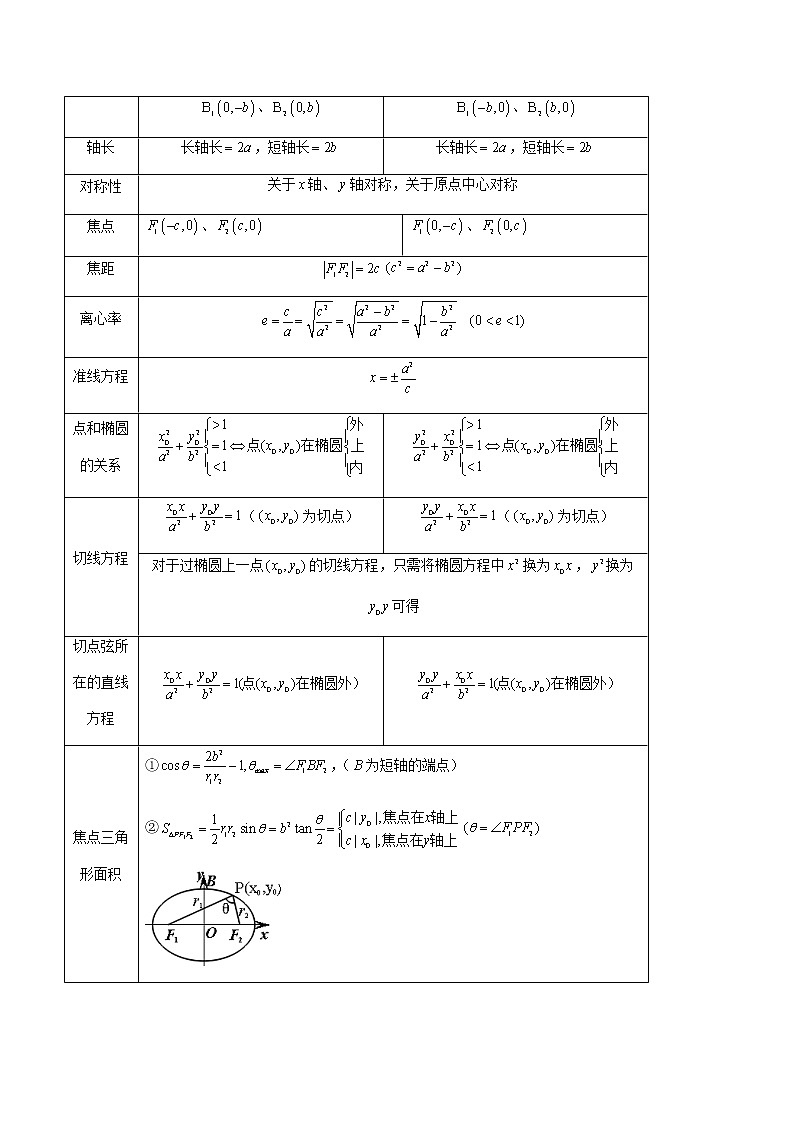 B₁(0,−b)、B₂(0,b) B₁(−b,0)、B₂(b,0)
轴长 长轴长 = 2a，短轴长 = 2b 长轴长 = 2a，短轴长 = 2b
对称性 关于 x 轴、y 轴对称，关于原点中心对称
焦点 F₁(−c,0)、F₂(c,0) F₁(0,−c)、F₂(0,c)
焦距 |F₁F₂| = 2c (c² = a² − b²)
离心率 e = c/a = √(c²/a²) = √((a² − b²)/a²) = √(1 − b²/a²) (0 < e < 1)
准线方程 x = ± a²/c
点和椭圆
的关系
x₀²/a² + y₀²/b² { >1 =1 <1 ⇔ 点(x₀, y₀)在椭圆 { 外 上 内
y₀²/a² + x₀²/b² { >1 =1 <1 ⇔ 点(x₀, y₀)在椭圆 { 外 上 内
切线方程
x₀x/a² + y₀y/b² = 1（(x₀, y₀) 为切点） y₀y/a² + x₀x/b² = 1（(x₀, y₀) 为切点）
对于过椭圆上一点 (x₀, y₀) 的切线方程，只需将椭圆方程中 x² 换为 x₀x，y² 换为
y₀y 可得
切点弦所
在的直线
方程
x₀x/a² + y₀y/b² = 1(点(x₀, y₀)在椭圆外） y₀y/a² + x₀x/b² = 1(点(x₀, y₀)在椭圆外）
焦点三角
形面积
①cosθ = 2b²/(r₁r₂) − 1, θmax = ∠F₁BF₂，( B 为短轴的端点）
②S△PF₁F₂ = 1/2 r₁r₂ sinθ = b² tan θ/2 = { c | y₀ |,焦点在x轴上 c | x₀ |,焦点在y轴上 (θ = ∠F₁PF₂)
y B
P(x₀,y₀)
r₁ θ r₂
F₁ O F₂ x